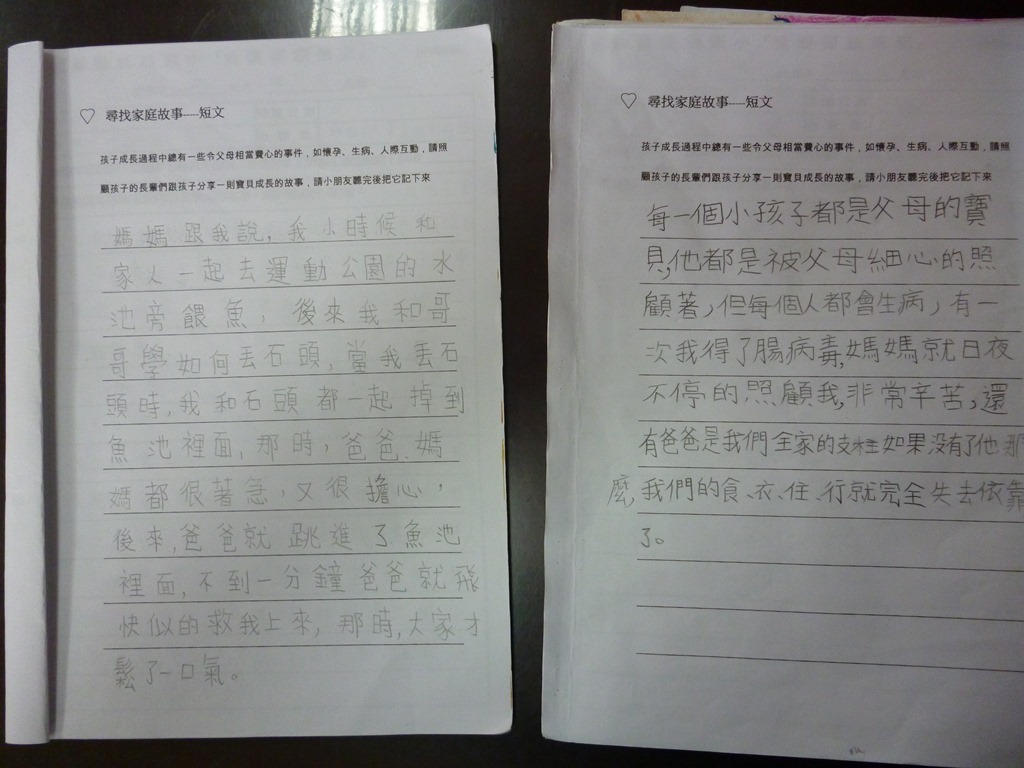 ♡ 尋找家庭故事----短文
孩子成長過程中總有一些令父母相當費心的事件，如懷孕、生病、人際互動，請照
顧孩子的長輩們跟孩子分享一則寶貝成長的故事，請小朋友聽完後把它記下來
媽媽跟我說，我小時候和
家人一起去運動公園的水
池旁餵魚，後來我和哥
哥學如何丟石頭，當我丟石
頭時，我和石頭都一起掉到
魚池裡面，那時，爸爸、媽
媽都很著急，又很擔心，
後來，爸爸就跳進了魚池
裡面，不到一分鐘爸爸就飛
快似的救我上來，那時，大家才
鬆了一口氣。
♡ 尋找家庭故事----短文
孩子成長過程中總有一些令父母相當費心的事件，如懷孕、生病、人際互動，請照
顧孩子的長輩們跟孩子分享一則寶貝成長的故事，請小朋友聽完後把它記下來
每一個小孩子都是父母的寶
貝，他都是被父母細心的照
顧著，但每個人都會生病，有一
次我得了腸病毒，媽媽就日夜
不停的照顧我，非常辛苦，還
有爸爸是我們全家的支柱如果沒有了他那
麼，我們的食、衣、住、行就完全失去依靠
了。